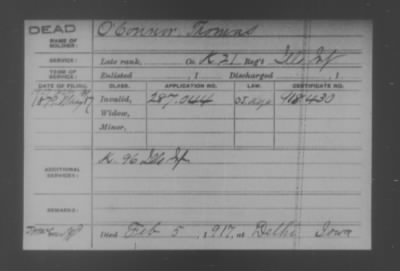 DEAD
NAME OF SOLDIER: O'Connor Thomas
SERVICE: Late rank, Co. K 21 Reg't Ills Inf
TERM OF SERVICE: Enlisted , 1 Discharged , 1
DATE OF FILING. CLASS. APPLICATION NO. LAW. CERTIFICATE NO.
Invalid, 287.044 418.430
Widow,
Minor,
ADDITIONAL SERVICES: K. 96 Ills Inf
REMARKS:
Died Feb 5, 1917, at Delhi Iowa